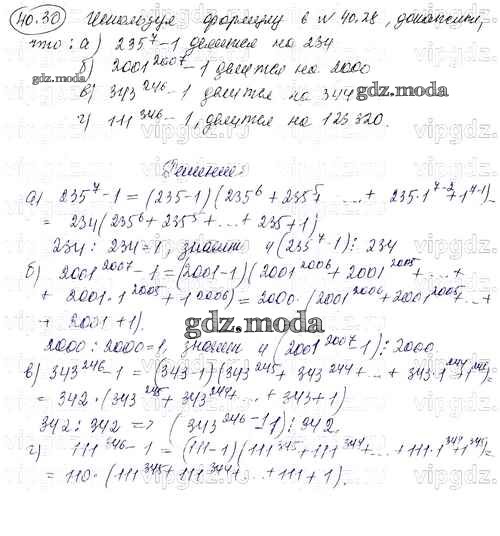 40.30 Используя формулу в №40.28, докажем,
что: а) 235⁷-1 делится на 234
б) 2001²⁰⁰⁷-1 делится на 2000
в) 343²⁴⁶-1 делится на 344
г) 111³⁴⁶-1, делится на 123320.
gdz.moda
Решение:
а) 235⁷-1=(235-1)(235⁶+235⁵+ ... + 235·1⁷⁻²+1⁷⁻¹)=
=234(235⁶+235⁵+...+235+1)
234:234=1, значит и (235⁷-1):234
б) 2001²⁰⁰⁷-1=(2001-1)(2001²⁰⁰⁶+2001²⁰⁰⁵+...+
+2001·1²⁰⁰⁵+1²⁰⁰⁶)=2000·(2001²⁰⁰⁶+2001²⁰⁰⁵+...+
+2001+1).
gdz.moda
2000:2000=1, значит и (2001²⁰⁰⁷-1):2000.
в) 343²⁴⁶-1=(343-1)(343²⁴⁵+343²⁴⁴+...+343·1²⁴⁴+1²⁴⁵)=
=342·(343²⁴⁵+343²⁴⁴+...+343+1)
342:342 => (343²⁴⁶-1):342.
г) 111³⁴⁶-1=(111-1)(111³⁴⁵+111³⁴⁴+...+111·1³⁴⁴+1³⁴⁵)=
=110·(111³⁴⁵+111³⁴⁴+...+111+1).